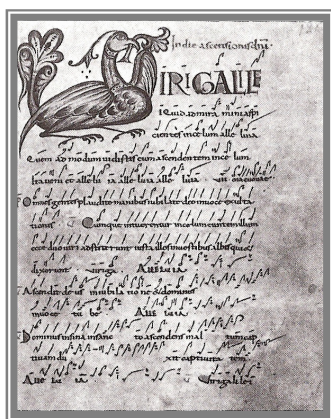 In die ascensionis dni.
IRIGALILE
i Quid admira mini aspi
cientes incelum alle luia
Quem ad modum uidistis eum ascendentem incelum
ita ueni et alle lu ia alle luia alle luia
Omnes gentes plaudite manibus iubilate deo inuoce exulta
tionis Cumque intuerentur incelum euntem illum
ecce duo uiri adstiterunt iuxta illos inuestibus albis qui et
dixerunt Uiri ga. Alle lu ia
Ascendit deus in iubila tio ne & dominus
inuoce tu be Alle lu ia
Dominus insina insanc to ascendens in al tum cap
tiuam du xit captiuita tem
Alle lu ia Uiri galilei